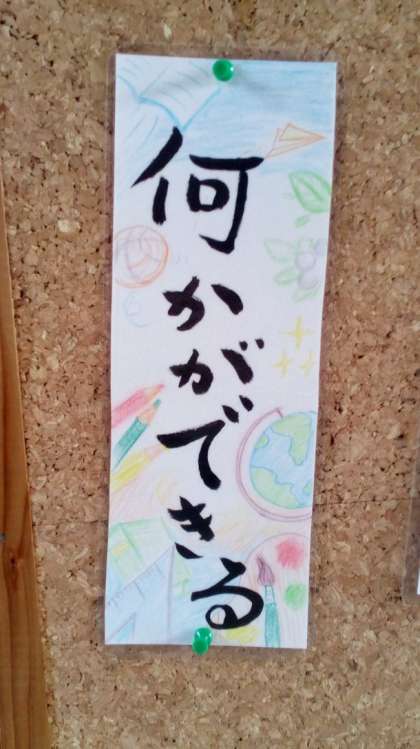 何かができる